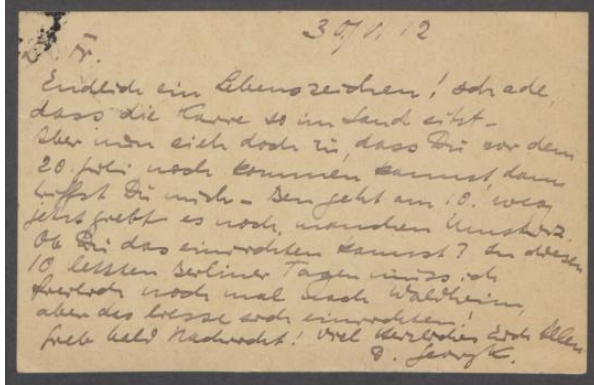 30/V. 12
L. Fr.
Endlich ein Lebenszeichen! Schade,
dass die Karre so im Sand sitzt –
Aber nun sieh doch zu, dass Du vor dem
20. Juli noch kommen kannst, dann
triffst Du mich – Ben geht am 10. weg
jetzt giebt es noch manchen Umsturz.
Ob Du das einrichten kannst? In diesen
10 letzten Berliner Tagen muss ich
freilich noch mal nach Waldheim,
aber das liesse sich einrichten!
Gieb bald Nachricht! Viel Herzliches Euch Allen
D. Georg K.